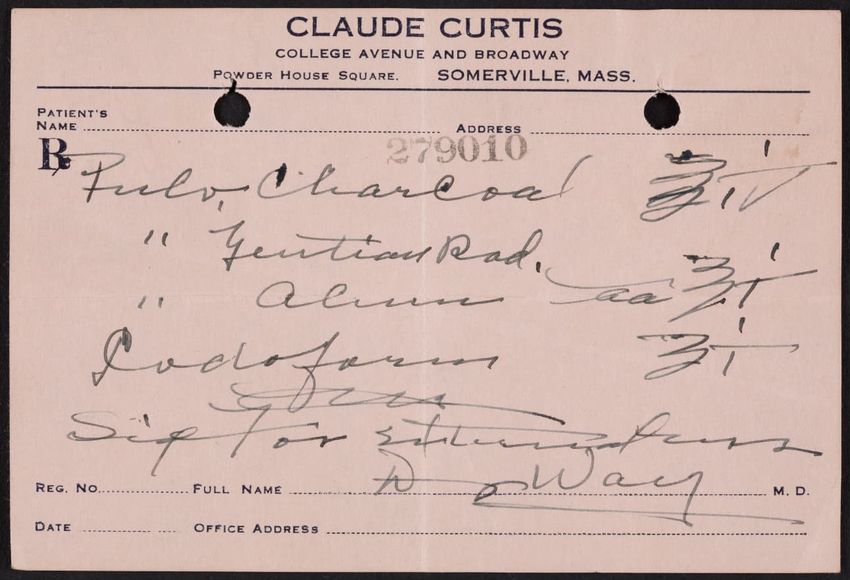 CLAUDE CURTIS
COLLEGE AVENUE AND BROADWAY
POWDER HOUSE SQUARE. SOMERVILLE, MASS.
PATIENT'S
NAME ADDRESS
279010
℞ Pulv. Charcoal ℥iv
" Gentian Rad.
" Alum aa ℥i
Iodoform ʒi
Sig for external use
Dr Way
REG. NO. FULL NAME M. D.
DATE OFFICE ADDRESS